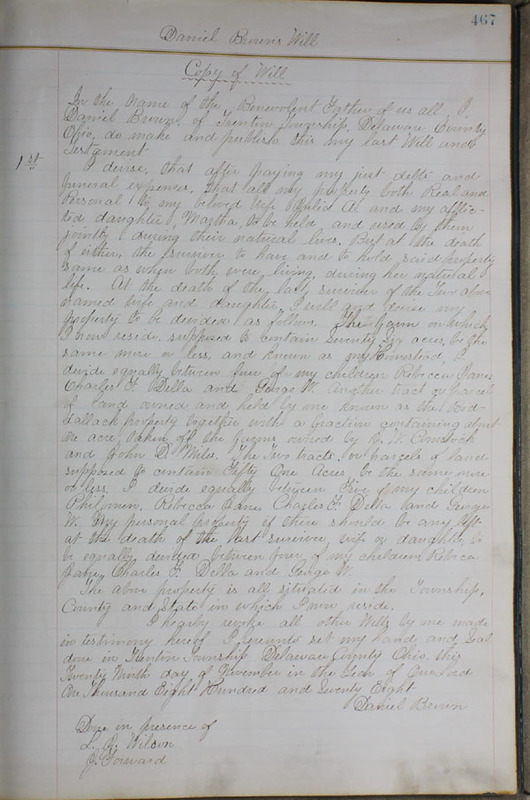 467
Daniel Brown's Will
Copy of Will
In the name of the Benevolent Father of us all, I,
Daniel Brown, of Trenton Township, Delaware County
Ohio, do make and publish this my last Will and
Testament
1st
I devise, that after paying my just debts and
funeral expenses, that all my property both Real and
Personal to my beloved wife A. and my afflic-
ted daughter, Martha, to be held, and used by them
jointly during their natural lives. But at the death
of either, the survivor to have and to hold, said property
same as when both were living, during her natural
life. At the death of the last survivor of the two above
named wife and daughter, I will and devise my
property to be devided as follows. The farm on which
I now reside supposed to contain Seventy Six acres, be the
same more or less, and known as my Homestead, I
devide equally between four of my children Rebecca Jane,
Charles F. Della and George W. Another tract or parcel
of land owned and held by me known as the
property together with a fraction containing about
one acre, taken off the farms owned by J. W. Comstock
and John D. The two tracts, or parcels of land
supposed to contain Fifty One Acres, be the same more
or less, I devide equally between Five of my children
Philomen, Rebecca Jane, Charles F. Della and George
W. My personal property if there should be any left
at the death of the last survivor, wife or daughter, to
be equally devided between four of my children Rebecca
Jane, Charles F. Della and George W.
The above property is all situated in the Township,
County and State in which I now reside.
I hearby revoke all other Wills by me made
in testimony hereof I hereunto set my hand and Seal
done in Trenton Township Delaware County Ohio, this
Twenty Ninth day of November in the Year of Our Lord
One Thousand Eight Hundred and Seventy Eight
Daniel Brown
Done in presence of
L. R. Wilson
J. Forward